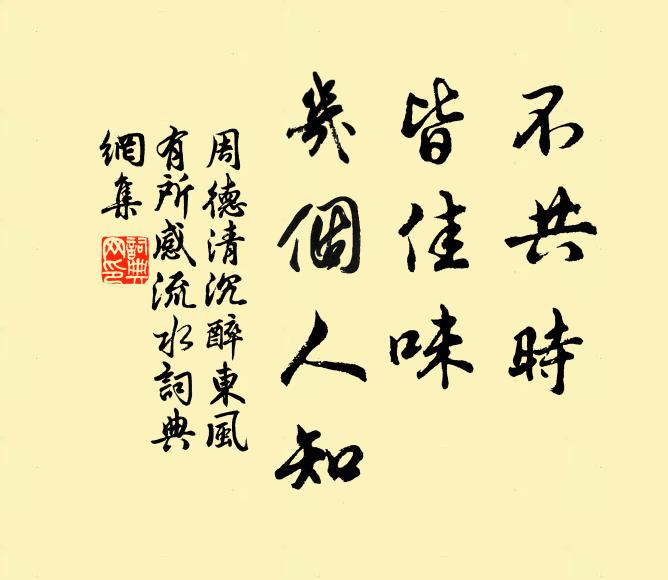 不共時
皆佳味
幾個人知
周德清沉醉東風
有所感流水詞典
網集
詞典
网印